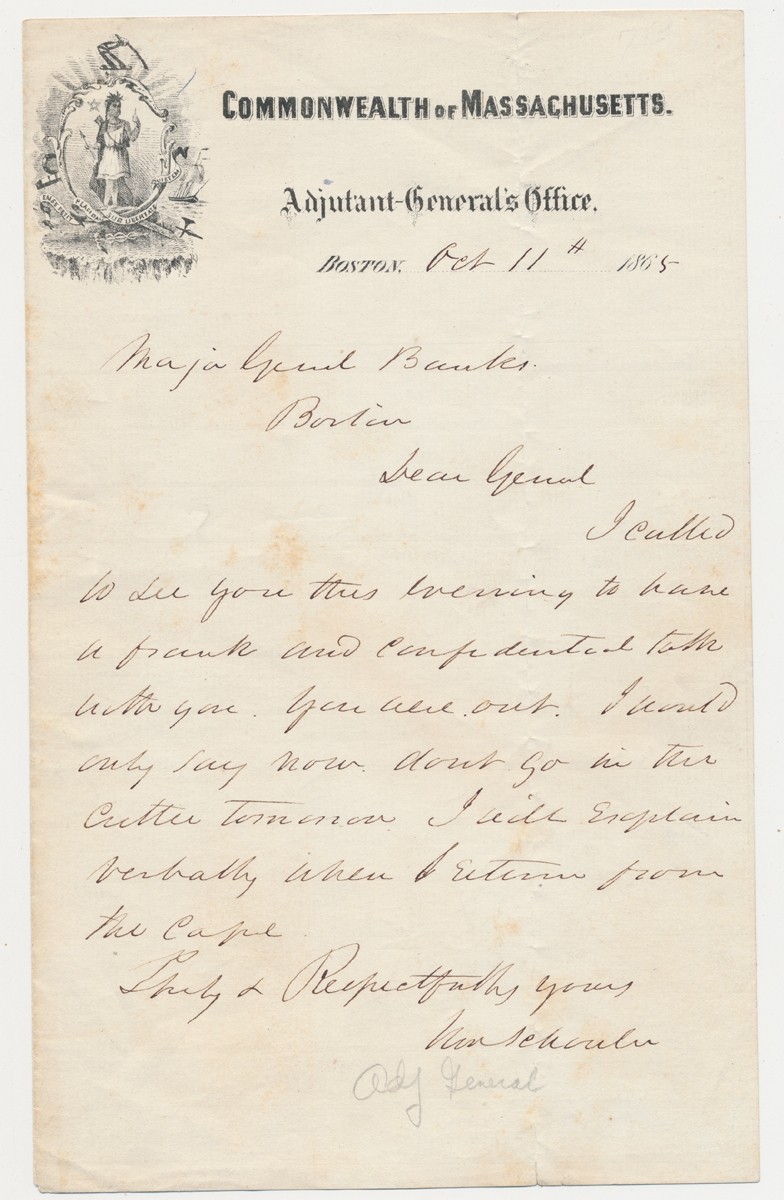 COMMONWEALTH OF MASSACHUSETTS.
Adjutant-General's Office.
BOSTON, Oct 11th 1865
Major Genl Banks.
Boston
Dear Genral
I called
to see you this evening to have
a frank and confidential talk
with you. You were out. I would
only say now. dont go in the
Cutter tomorrow I will Explain
verbally when I return from
the Cape
Truly & Respectfully yours
Wm Schouler
Adj General